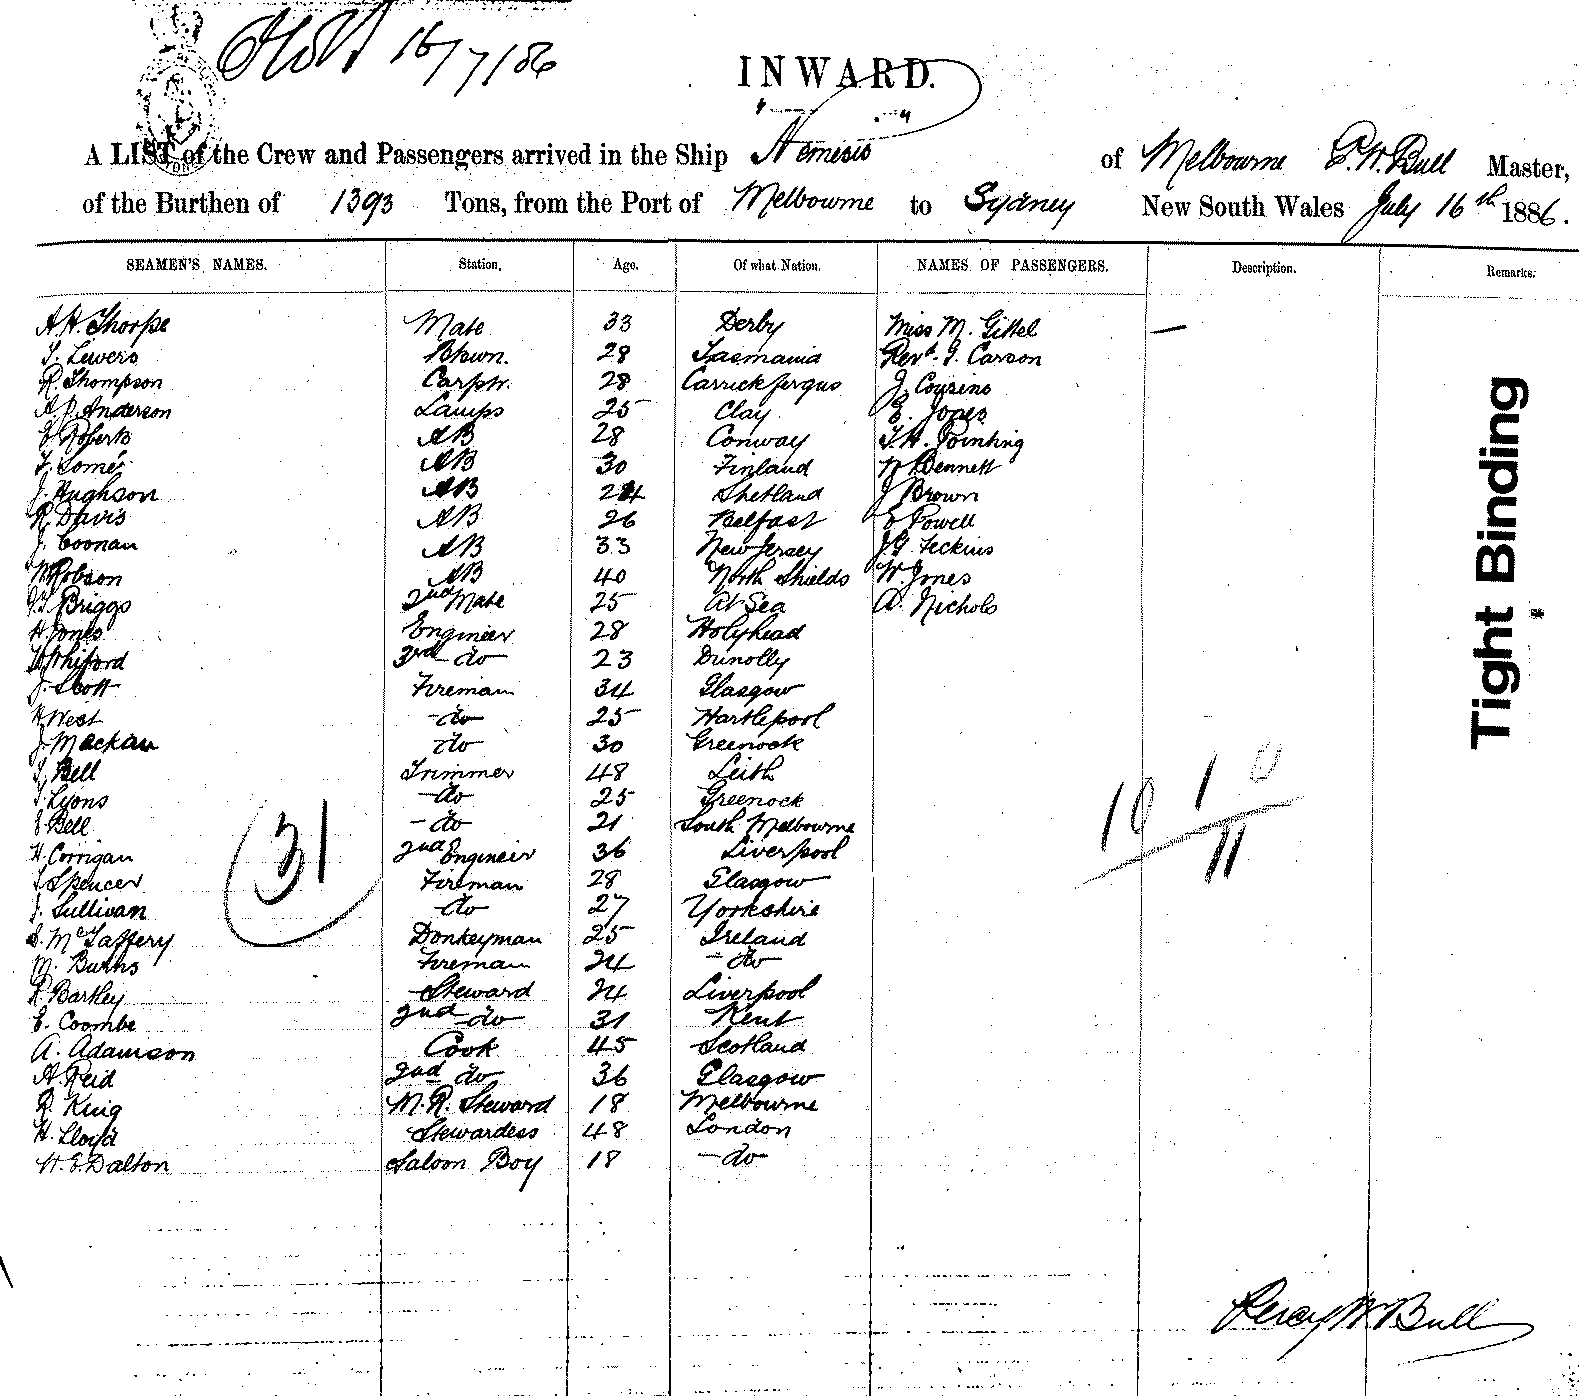 16/7/86
INWARD.
A LIST of the Crew and Passengers arrived in the Ship "Nemesis" of Melbourne P.W. Bull Master,
of the Burthen of 1393 Tons, from the Port of Melbourne to Sydney New South Wales July 16th 1886.
SEAMEN'S NAMES. Station. Age. Of what Nation. NAMES OF PASSENGERS. Description. Remarks.
A H Thorpe Mate 33 Derby Miss M. Gittel —
Lewers Bhwn. 28 Tasmania Revd. G. Carson
R. Thompson Carptr. 28 Carrickfergus J. Cousins
A. P. Anderson Lamps 25 Clay E. Jones
E Roberts AB 28 Conway T. H. Pointing
Somés AB 30 Finland Bennett
J. Hughson AB 24 Shetland J Brown
R. Davis AB 26 Belfast E Powell
J. Coonan AB 33 New Jersey J.G. Feckins
W Robson AB 40 North Shields W. Jones
Briggs 2nd Mate 25 At Sea A. Nichols
H Jones Engineer 28 Holyhead
Whiford 3rd do 23 Dunolly
J. Scott Fireman 34 Glasgow
H West do 25 Hartlepool
J. Mackau do 30 Greenock
Bell Trimmer 48 Leith
Lyons do 25 Greenock
Bell do 21 South Melbourne
H Corrigan 2nd Engineer 36 Liverpool
Spencer Fireman 28 Glasgow
J. Sullivan do 27 Yorkshire
McTaffery Donkeyman 25 Ireland
M. Burns Fireman 24 do
R Bartley Steward 24 Liverpool
E. Coombe 2nd do 31 Kent
A. Adamson Cook 45 Scotland
A. Reid 2nd do 36 Glasgow
R. King M. R. Steward 18 Melbourne
H. Lloyd Stewardess 48 London
H. E Dalton Saloon Boy 18 do
31
10 1 0
11
Tight Binding
Percy W Bull